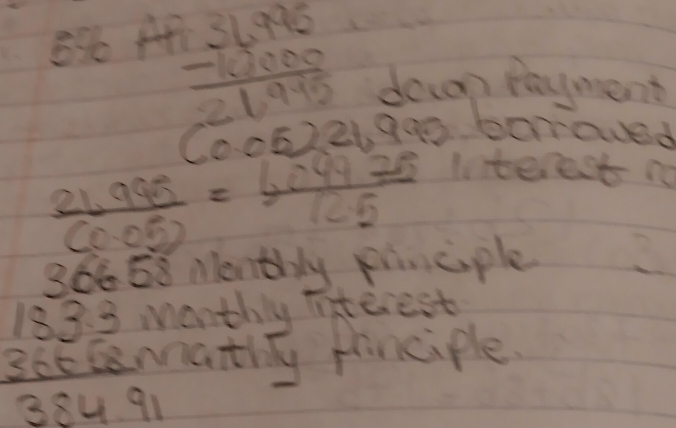 5% APR 31,995
-10,000
21,995 down Payment
(0.05) 21,995 borrowed
21,995 = 1,099.75 Interest
(0.05) 12.5
366.58 Monthly principle
183.3 monthly Interest
366.58 monthly principle.
384.91